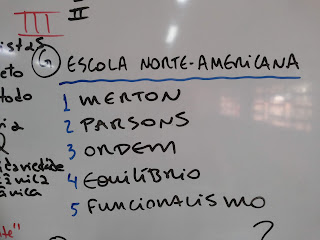 III
II
istas
G ESCOLA NORTE-AMERICANA
eto
1 MERTON
todo
2 PARSONS
3 ORDEM
4 EQUILÍBRIO
5 FUNCIONALISMO
?